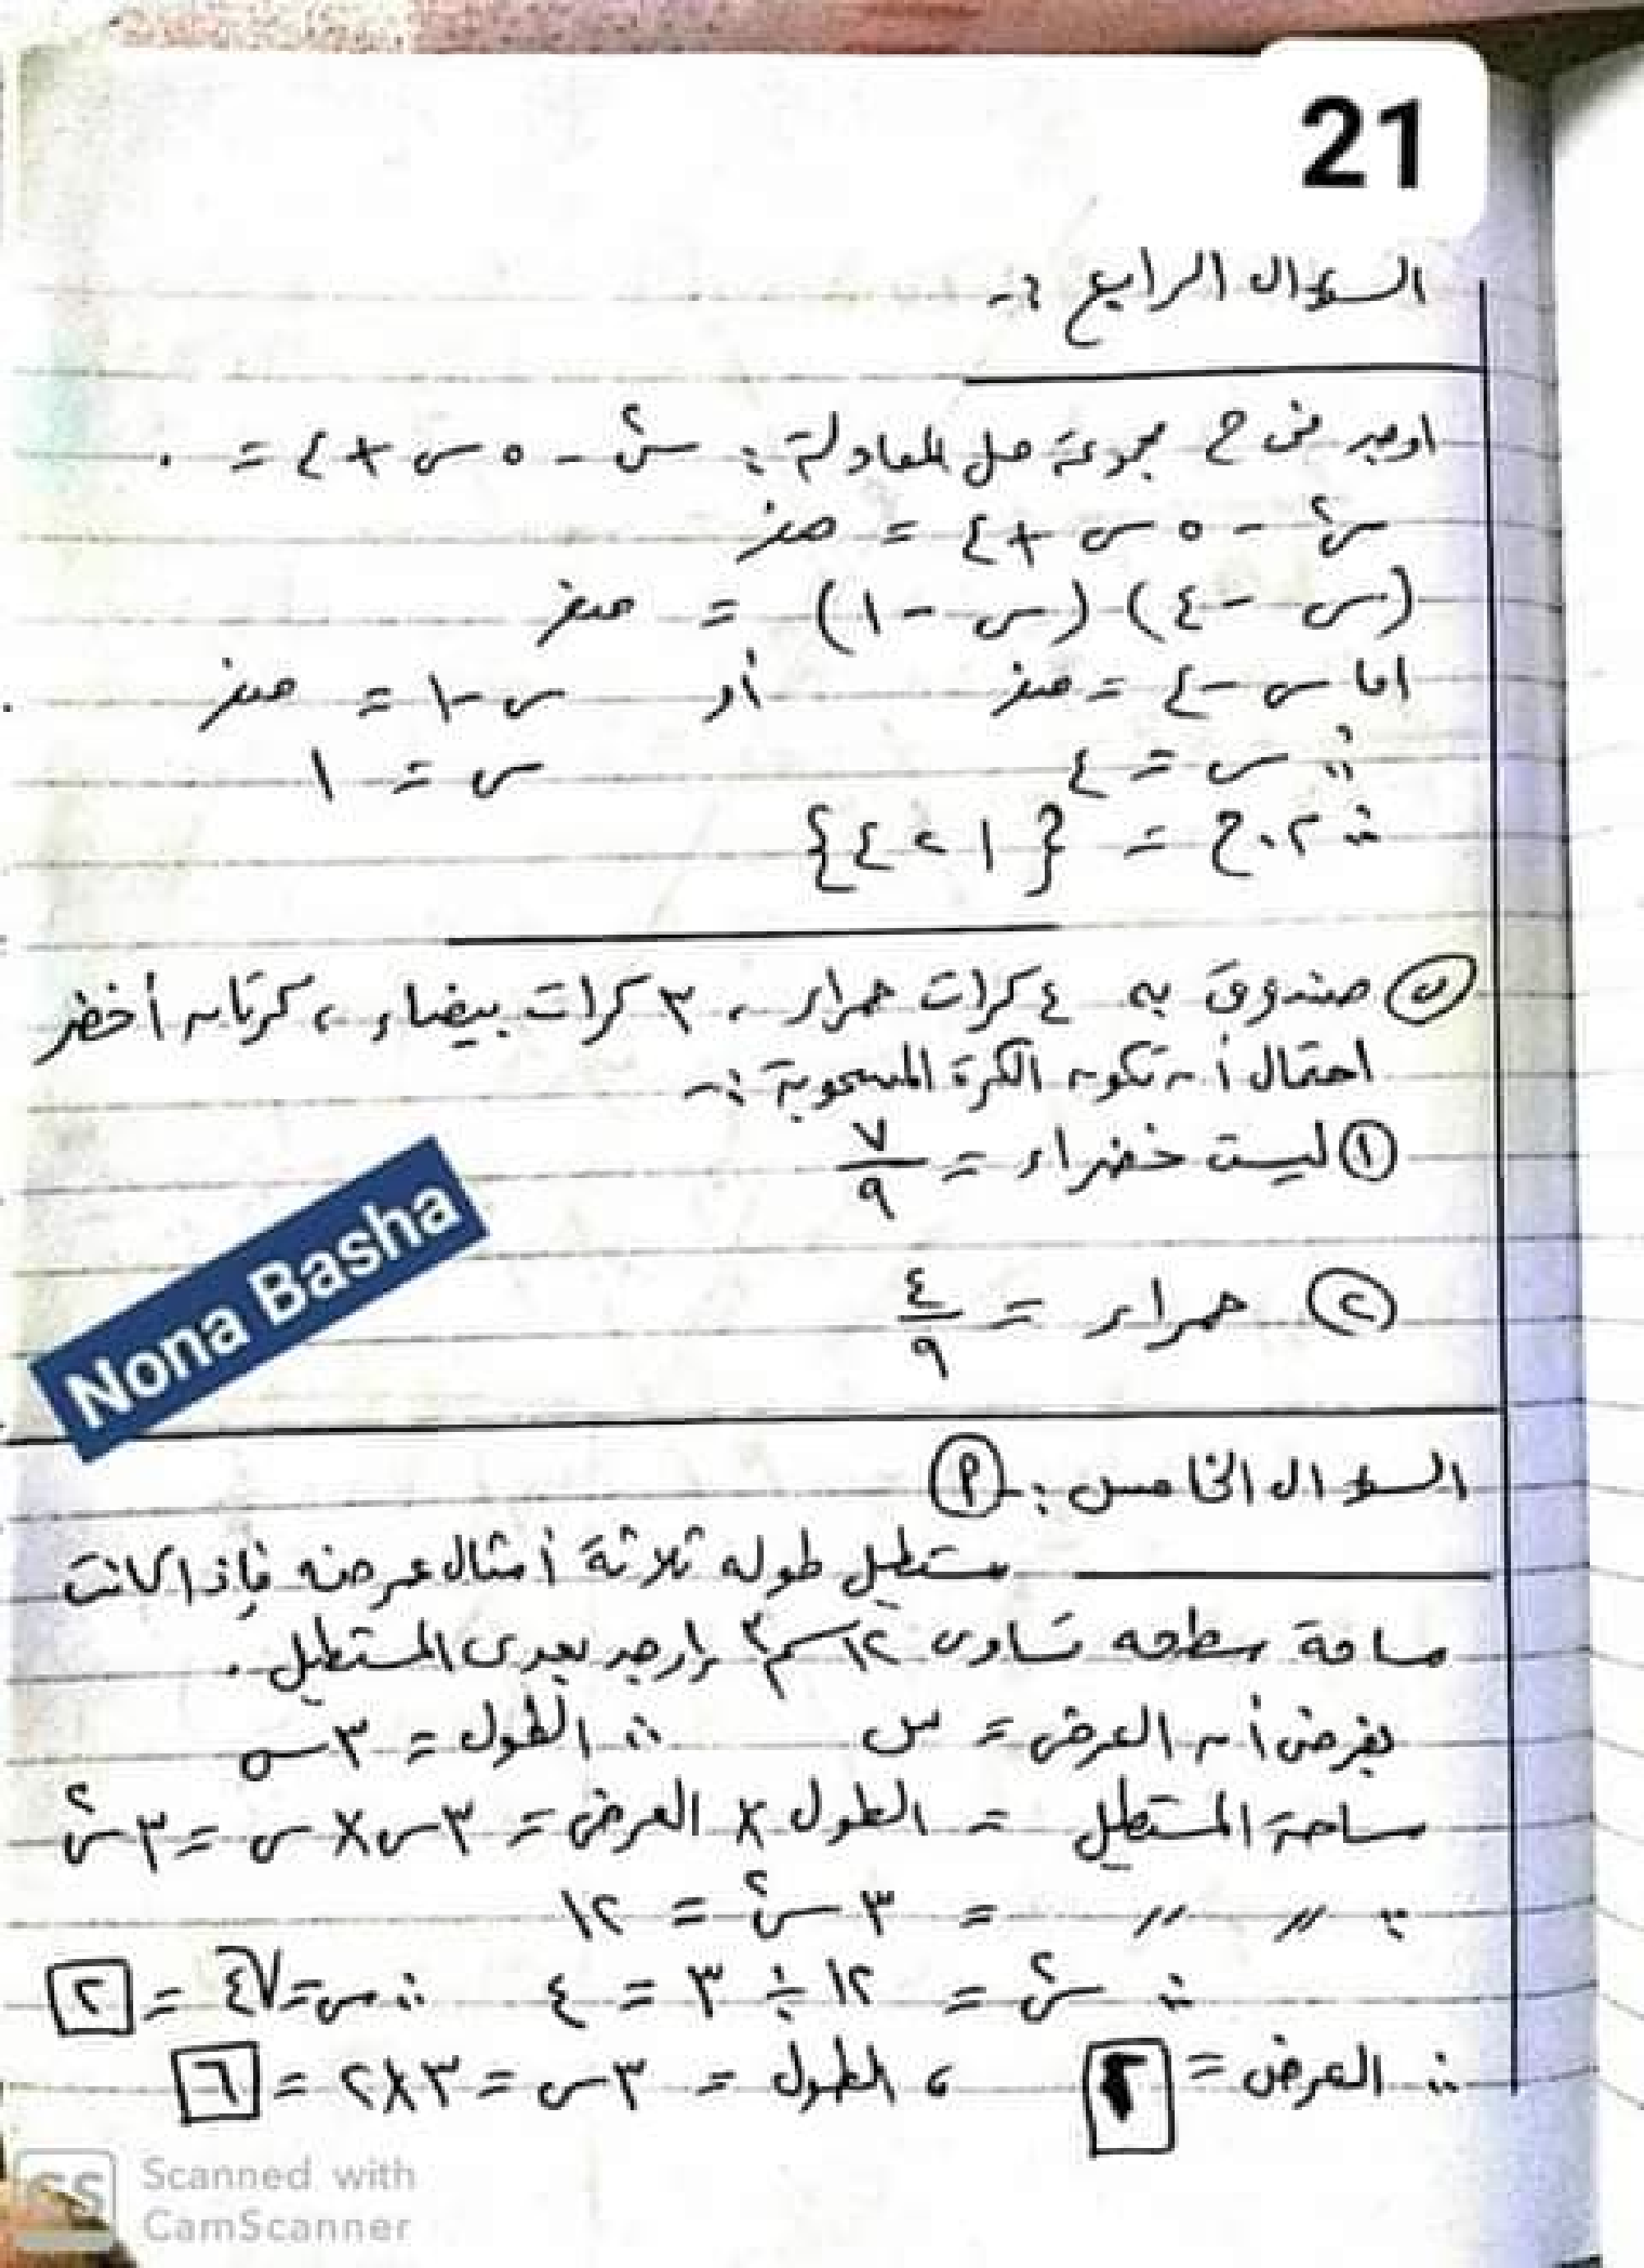 21
السؤال الرابع :-
اوجد فى ح مجموعة حل المعادلة : س٢ - ٥ س + ٤ = ٠
س٢ - ٥ س + ٤ = صفر
(س - ٤) (س - ١) = صفر
اما س - ٤ = صفر أو س - ١ = صفر
∴ س = ٤ س = ١
∴ م.ح = {١ ، ٤}
ب صندوق به ٤ كرات حمراء ، ٣ كرات بيضاء ، كرتان أخضر
احتمال أن تكون الكرة المسحوبة :-
١ ليست خضراء = ٧/٩
٢ حمراء = ٤/٩
Nona Basha
السؤال الخامس :- أ
مستطيل طوله ثلاثة أمثال عرضه فإذا كانت
مساحة سطحه تساوى ١٢ سم٢ أوجد بعدى المستطيل .
بفرض أن العرض = س ∴ الطول = ٣س
مساحة المستطيل = الطول × العرض = ٣س × س = ٣س٢
∵ " " = ٣ س٢ = ١٢
∴ س٢ = ١٢ ÷ ٣ = ٤ ∴ س = √٤ = ٢
∴ العرض = ٢ ، الطول = ٣س = ٣×٢ = ٦
Scanned with
CamScanner